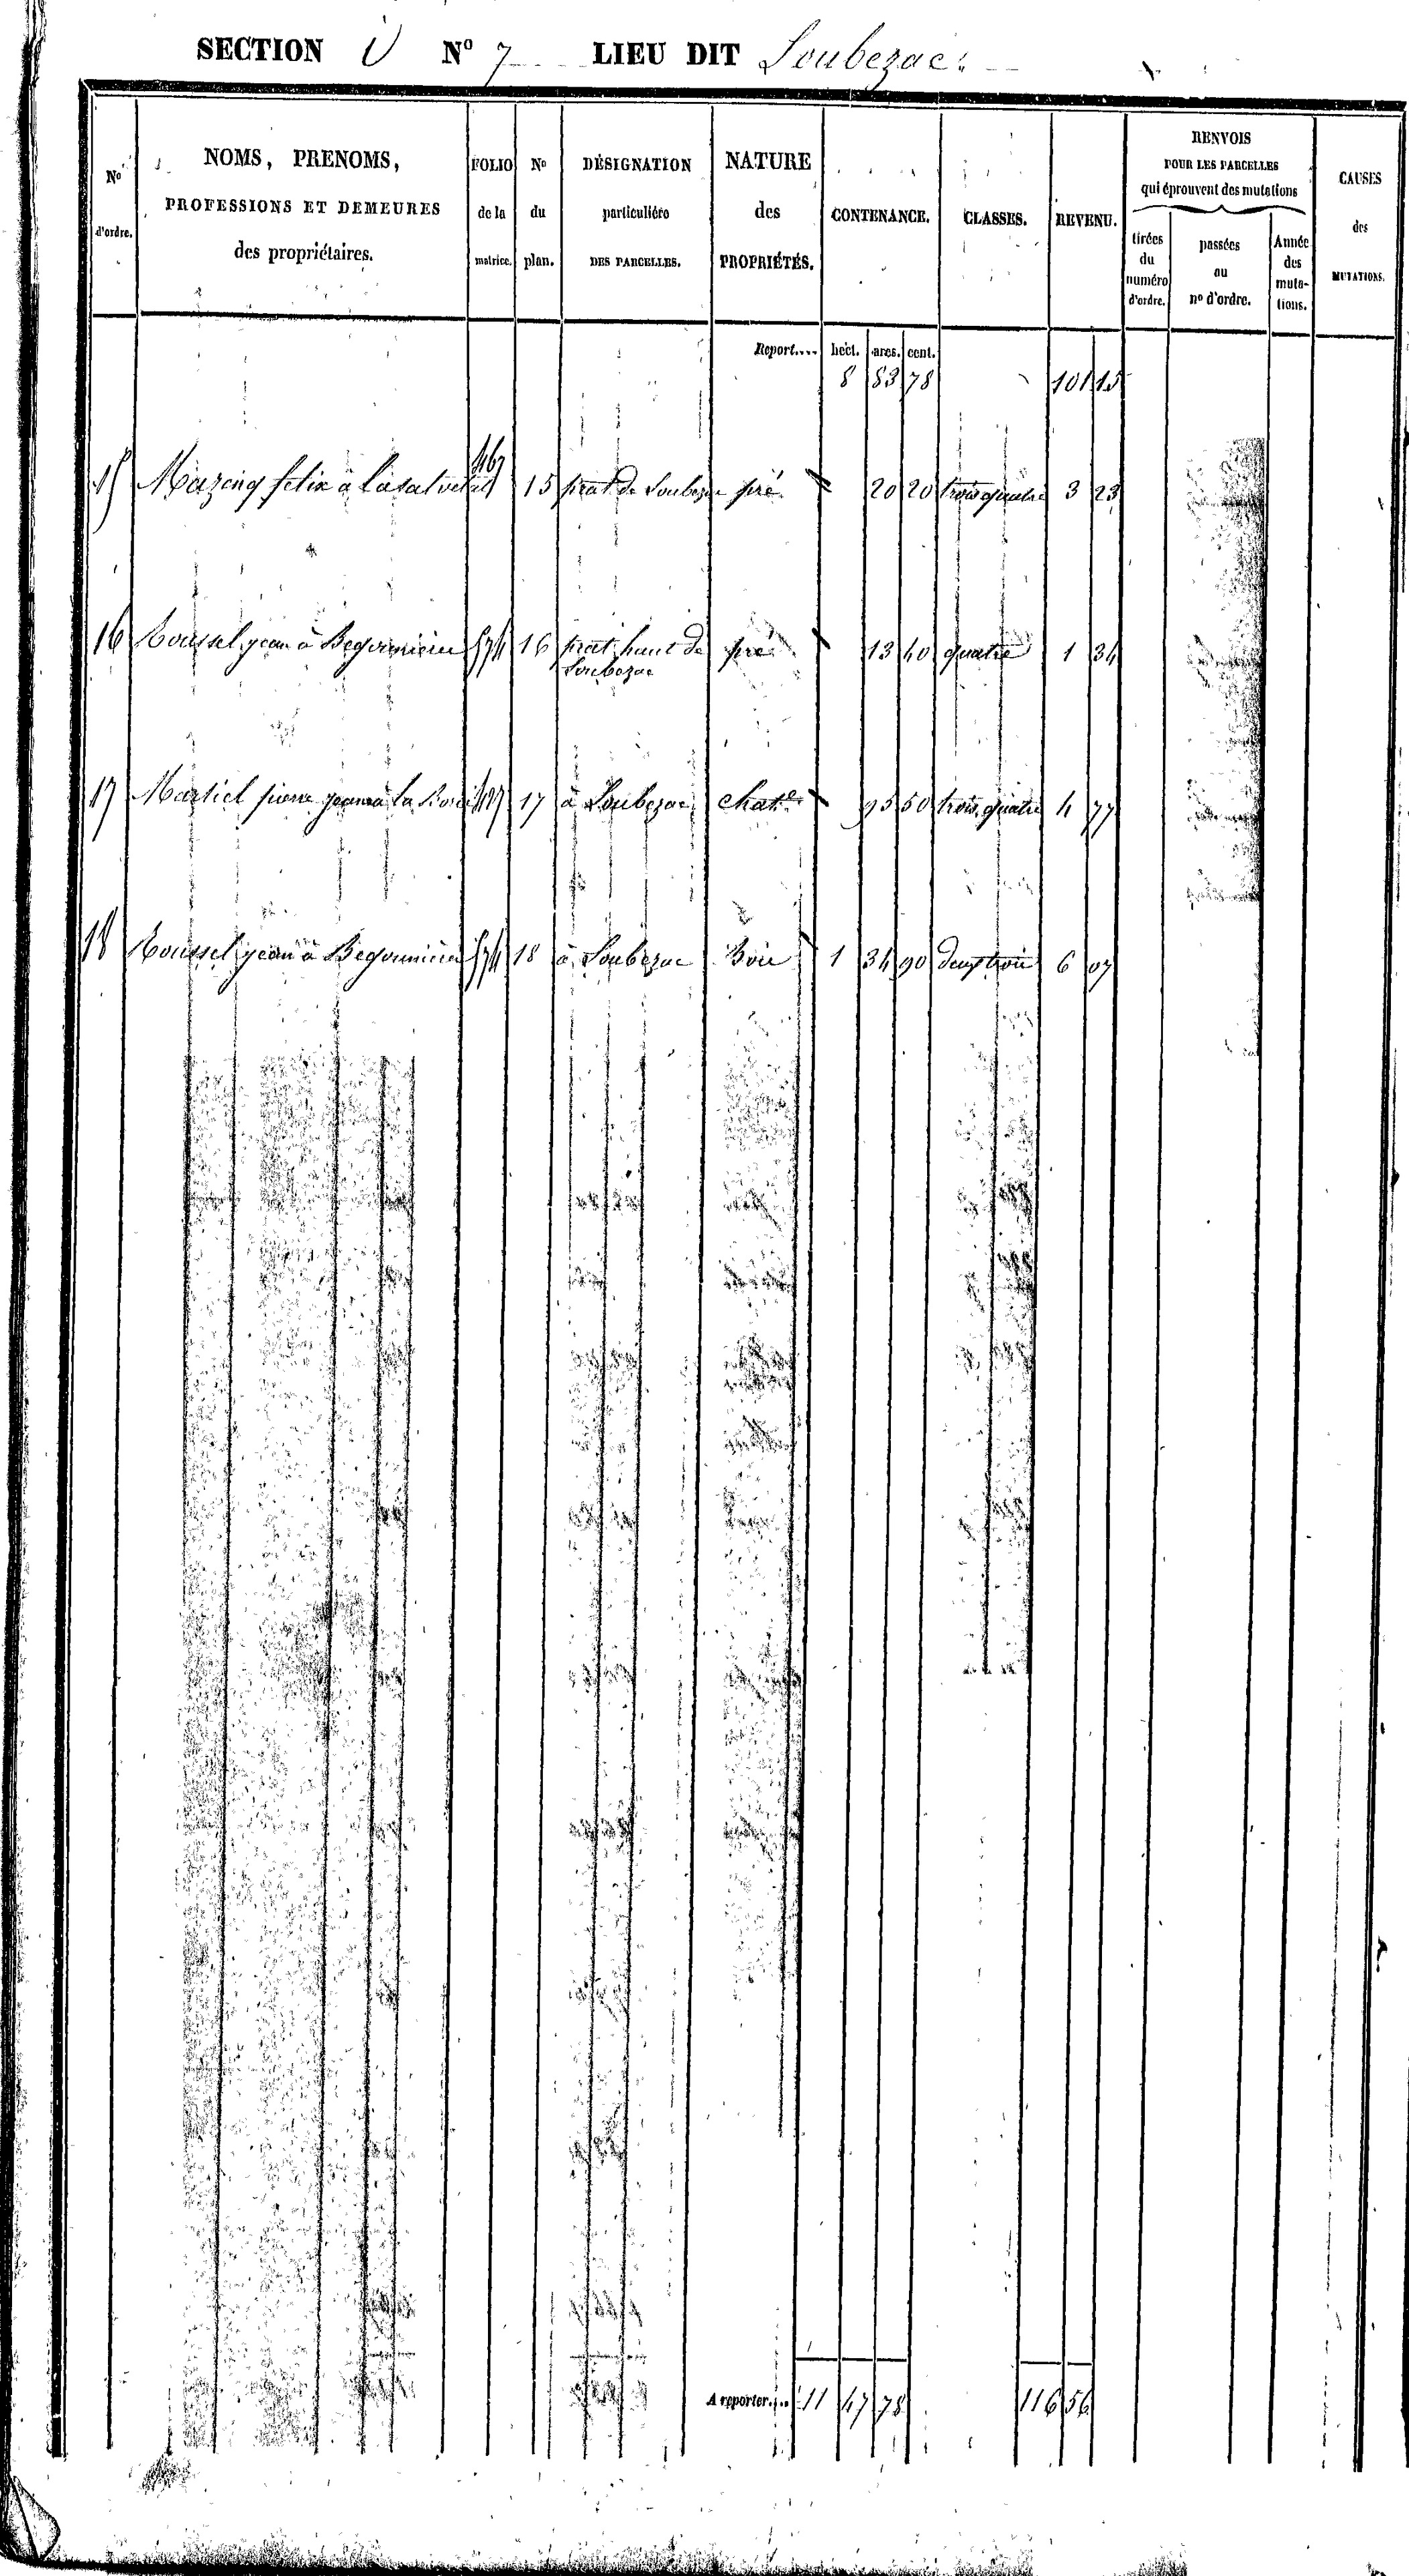 SECTION U N° 7 LIEU DIT Soubezac
N° d'ordre. NOMS, PRENOMS, PROFESSIONS ET DEMEURES des propriétaires. FOLIO de la matrice. N° du plan. DÉSIGNATION particulière DES PARCELLES. NATURE des PROPRIÉTÉS. CONTENANCE. CLASSES. REVENU. RENVOIS POUR LES PARCELLES qui éprouvent des mutations tirées du numéro d'ordre. passées au n° d'ordre. Année des mutations. CAUSES des MUTATIONS.
Report.... hect. ares. cent.
8 83 78 101 15
15 felix à Lasalvetat 467 15 prat de Soubezac pré 20 20 trois quatre 3 23
16 jean à 574 16 prat haut de Soubezac pré 13 40 quatre 1 34
17 Martiel pierre jean à la 17 à Soubezac chat.e 95 50 trois, quatre 4 77
18 jean à 574 18 à Soubezac Bois 1 34 90 deux trois 6 07
A reporter.... 11 47 78 116 56